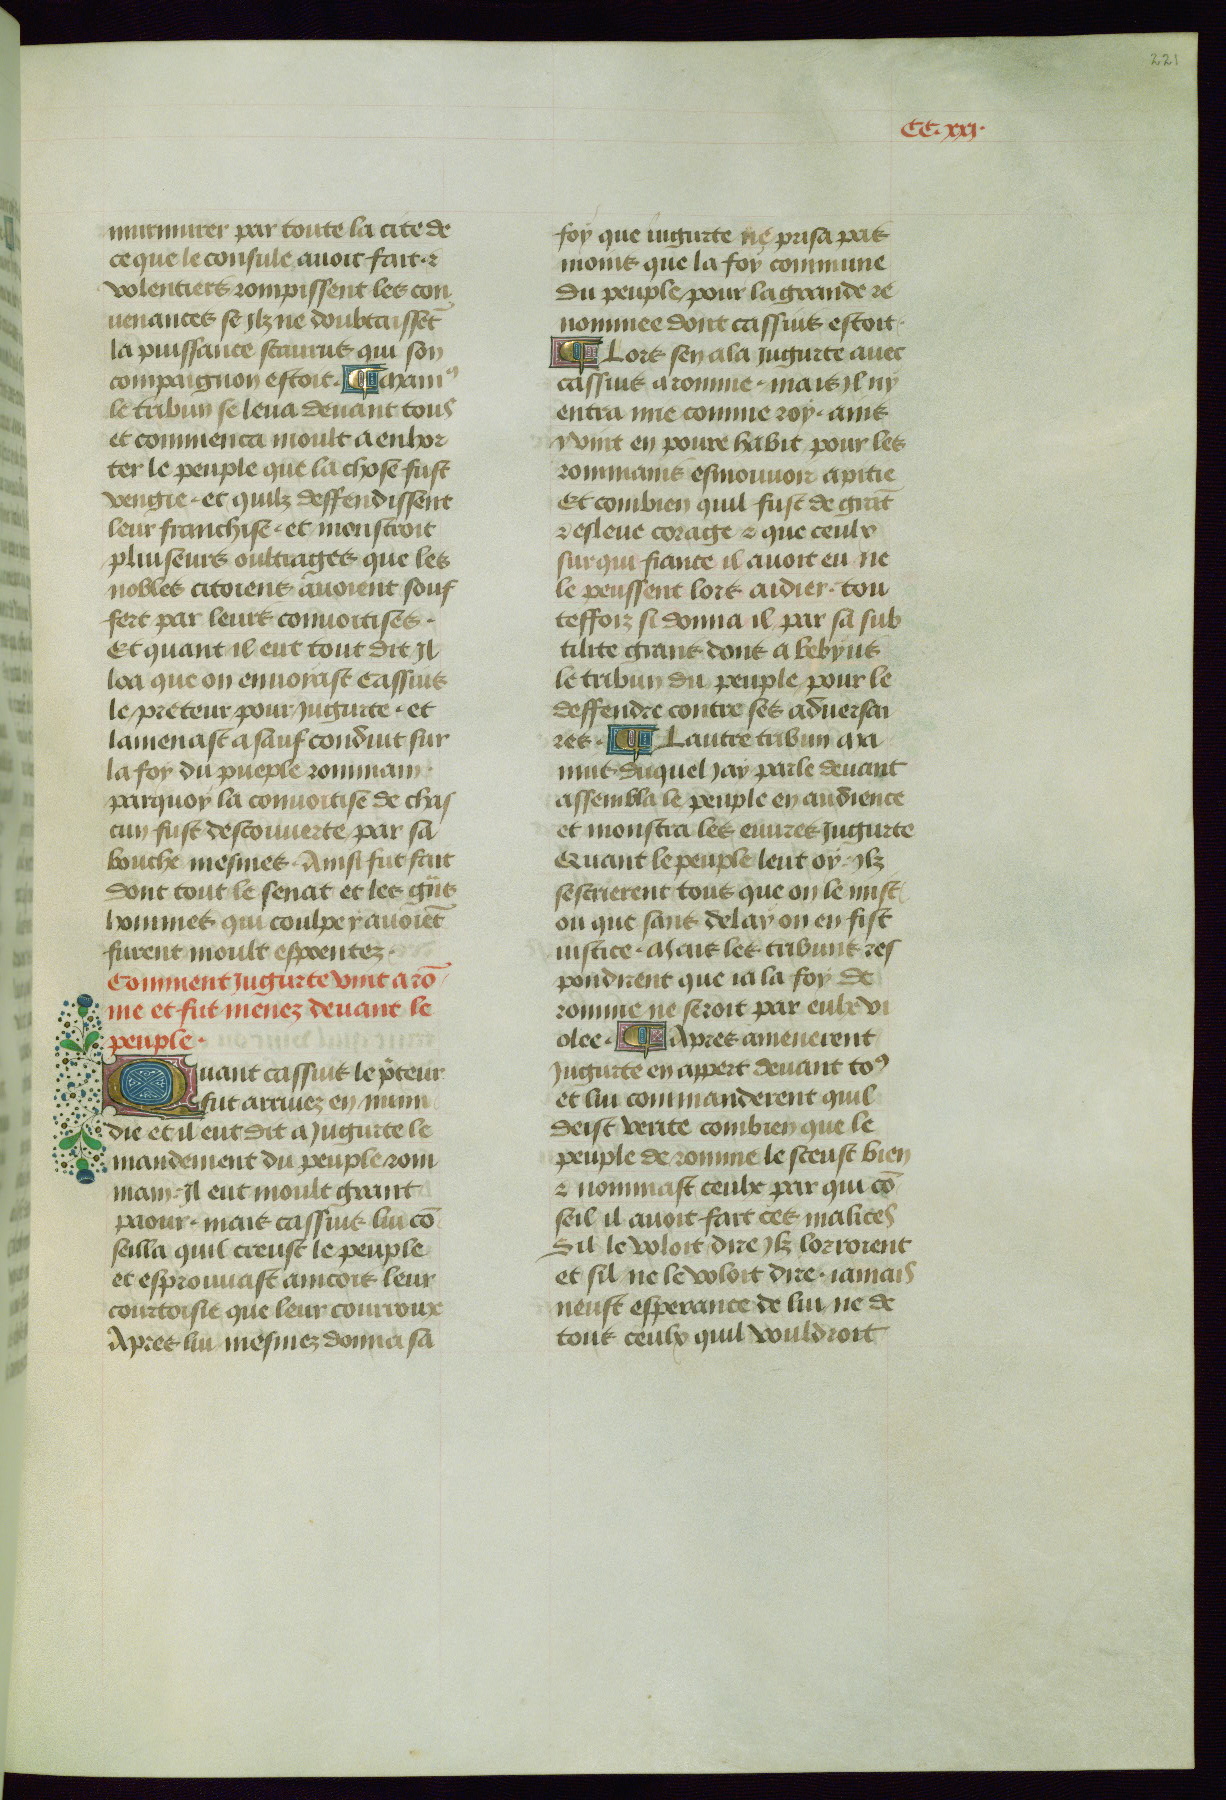 221
CC.xxi.
murmurer par toute la cite de
ce que le consule auoit fait · ⁊
volentiers rompissent les con
uenances se Ilz ne doubtaissẽt
la puissance scaurus qui son
compaignon estoit · ¶ Maxim⁹
le tribun se leua deuant tous
et commenca moult a enhor
ter le peuple que la chose fust
vengie · et quilz deffendissent
leur franchise · et monstroit
pluiseurs oultrages que les
nobles citoiens auoient souf
fert par leurs conuoitises ·
Et quant il eut tout dit Il
loa que on enuoiast Cassius
le preteur pour Jugurte · et
lamenast a sauf conduit sur
la foy du pueple rommain ·
parquoy la conuoitise de chas
cun fust descouuerte par sa
bouche mesmes · Ainsi fut fait
dont tout le senat et les gñs
hommes qui coulpe y auoiẽt
furent moult espoentez ·
Comment Jugurte vint a rõ
me et fut menez deuant le
peuple ·
Quant cassius le p̃teur
fut arriuez en numi
die et il eut dit a Jugurte le
mandement du peuple rom
main · Il eut moult grant
paour · mais cassius lui cõ
seilla quil creust le peuple
et esprouuast aincois leur
courtoisie que leur courroux
Apres lui mesmez donna sa
foy que iugurte ne prisa pas
moins que la foy commune
du peuple pour la grande re
nommee dont cassius estoit ·
¶ Lors sen ala Jugurte auec
cassius a romme · mais Il ny
entra mie comme roy · ains
y vint en poure habit pour les
rommains esmouuoir a pitie
Et combien quil fust de grãt
⁊ esleue corage ⁊ que ceulx
sur qui fiance il auoit eu ne
le peussent lors aidier · tou
teffoiz si donna il par sa sub
tilite grans dons a bebyus
le tribun du peuple pour le
deffendre contre ses aduersai
res · ¶ Lautre tribun Ma
nius duquel Jay parle deuant
assembla le peuple en audience
et monstra les euures Jugurte
Quant le peuple leut oy · Ilz
sescrierent tous que on le mist
ou que sans delay on en fist
iustice · Mais les tribuns res
pondirent que ia la foy de
romme ne seroit par eulx vi
olee · ¶ Apres amenerent
Jugurte en appert deuant to⁹
et lui commanderent quil
deist verite combien que le
peuple de romme le sceust bien
⁊ nommast ceulx par qui cõ
seil il auoit fait ces malices
Sil le voloit dire Ilz lorroient
et sil ne le voloit dire · iamais
neust esperance de lui ne de
tous ceulx quil vouldroit